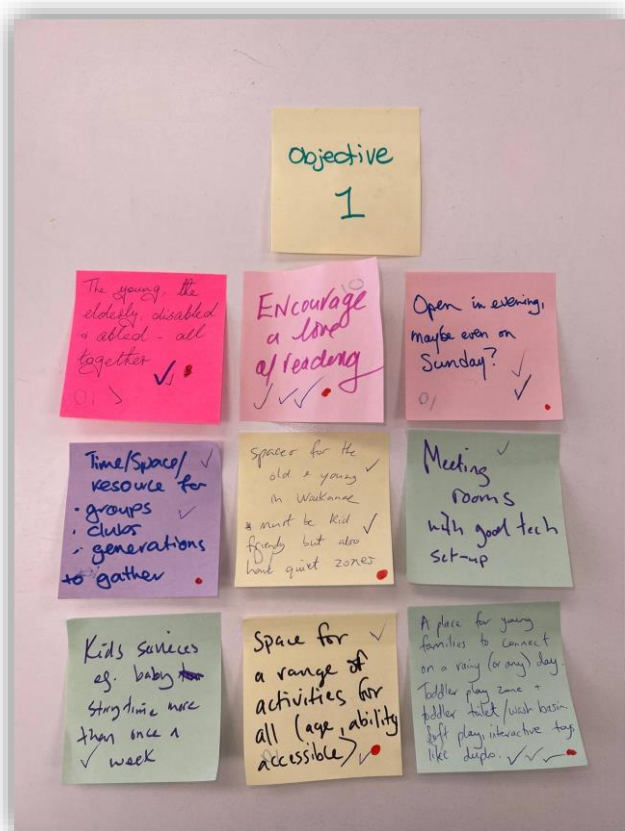 Objective
1
The young, the
elderly, disabled
+ abled - all
together
ENcourage
a love
of reading
Open in evening,
maybe even on
Sunday?
Time/Space/
resource for
· groups
· clubs
· generations
to gather
spaces for the
old + young
in Waikanae
must be kid
friendly but also
have quiet zones
Meeting
rooms
with good tech
set-up
Kids services
eg. baby
storytime more
than once a
week
Space for
a range of
activities for
all (age, ability
accessible)
A place for young
families to connect
on a rainy (or any) day.
Toddler play zone +
toddler toilet/wash basin
soft play, interactive toys
like duplo.